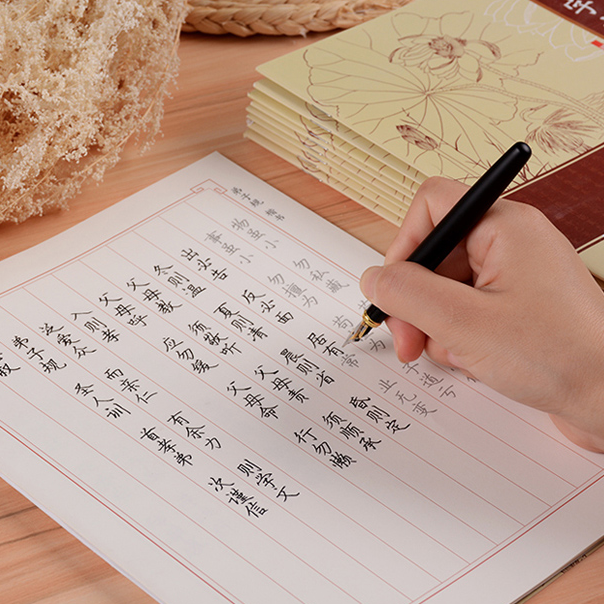 弟子规 楷书
物虽小 勿私藏
事虽小 勿擅为 苟 为 子道亏
出必告 反必面 居有常 业无变
冬则温 夏则凊 晨则省 昏则定
父母教 须敬听 父母责 须顺承
父母呼 应勿缓 父母命 行勿懒
入则孝
泛爱众 而亲仁 有余力 则学文
弟子规 圣人训 首孝弟 次谨信
叙